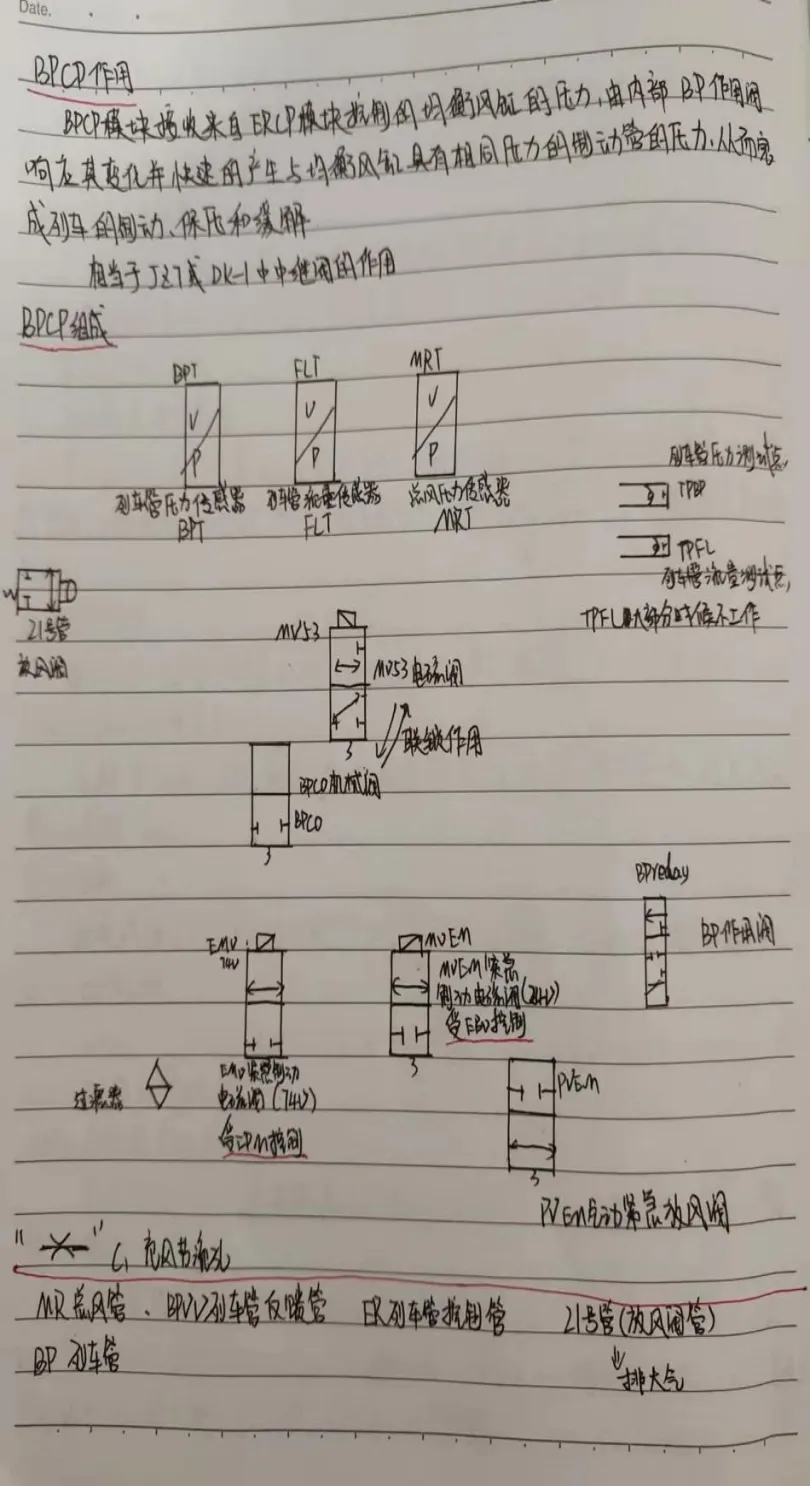 Date.
BPCP作用
BPCP模块接收来自ERCP模块控制的均衡风缸的压力,由内部BP作用阀
响应其变化并快速的产生与均衡风缸具有相同压力的制动管的压力、从而完
成列车的制动、保压和缓解
相当于JZ7或DK-1中中继阀的作用
BPCP组成
BPT FLT MRT
V V V
P P P
列车管压力传感器 列车管流量传感器 总风压力传感器
BPT FLT MRT
列车管压力测试点,
TPBP
TPFL
列车管流量测试点,
TPFL 大部分时候不工作
21号管
放风阀
MV53
MV53电磁阀
3
联锁作用
BPCO机械阀
BPCO
3
BPrelay
BP作用阀
EMV
74V
MVEM
MVEM紧急
制动电磁阀(24V)
受EBV控制
3
EMV紧急制动
电磁阀(74V)
受IPM控制
过滤器
PVEM
3
PVEM气动紧急放风阀
" " C1 充风节流孔
MR总风管、BPVV列车管反馈管 ER列车管控制管 21号管(放风阀管)
BP 列车管
排大气